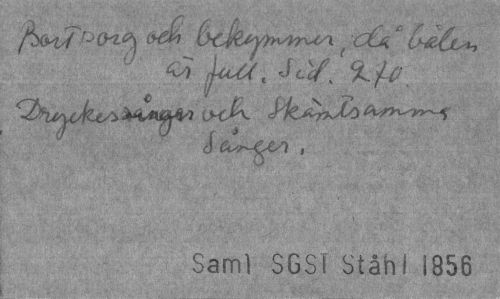 Bort sorg och bekymmer, då bålen
är full. Sid. 270.
Dryckessånger och Skämtsamma
Sånger.
Saml SGSI Ståhl 1856